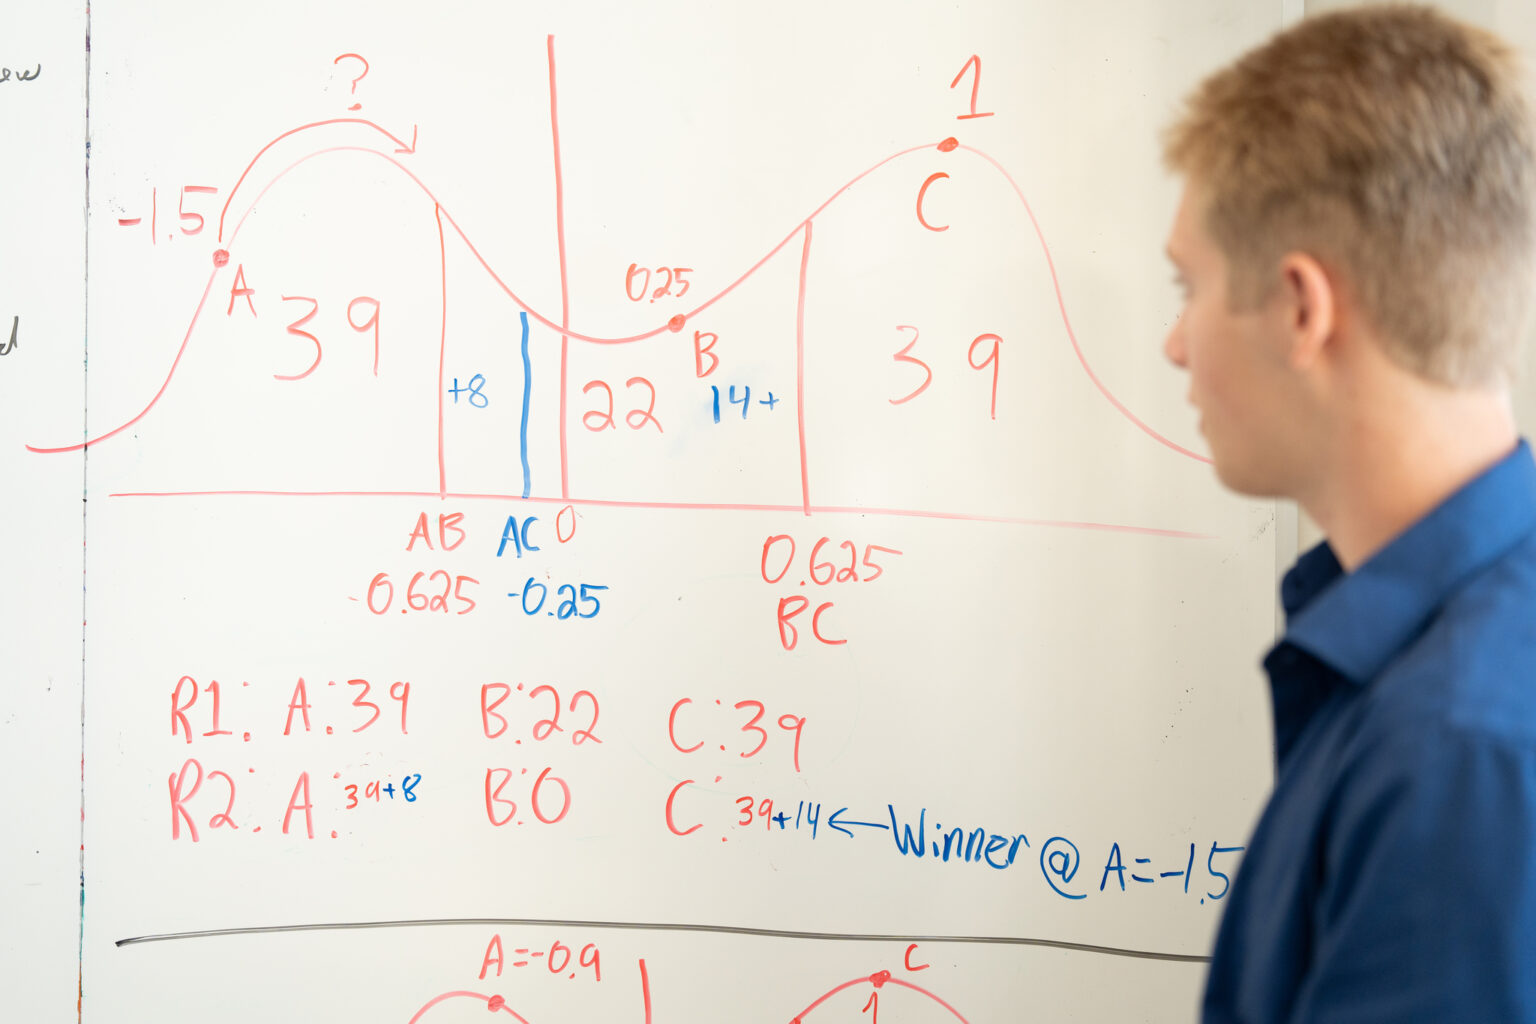 ?
1
-1.5
A
C
0.25
B
39
+8
22
14+
39
AB AC 0
-0.625 -0.25
0.625
BC
R1: A:39 B:22 C:39
R2: A:39+8 B:0 C:39+14 ← Winner @ A=-1.5
A=-0.9
C
1